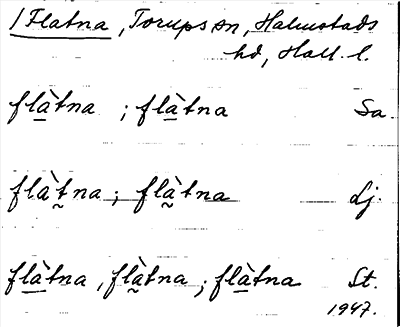 /Flatna, Torups sn, Halmstads
hd, Hall. l.
flàtna ; flàtna Sa.
flàtna ; flàtna Lj.
flàtna, flàtna ; flàtna St.
1947.